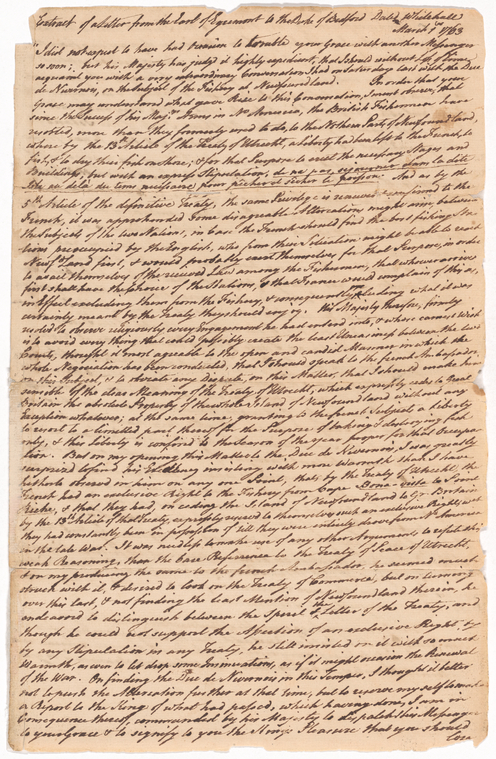 Extract of a Letter from the Earl of Egremont to the Duke of Bedford Dated Whitehall
March 1st 1763
I did not expect to have had occasion to trouble your Grace with another Messenger
so soon; but his Majesty has judged it highly expedient, that I should without loss of time,
acquaint you with a very extraordinary Conversation I had on Saturday last with the Duc
de Nivernois, on the Subject of the Fishery at Newfoundland. In order that your
Grace may understand what gave Rise to this Conversation, I must observe, that
since the Success of his Maj.'s Arms in No. America, the British Fishermen have
resorted, more than they formerly used to do, to the Northern Parts of Newfoundland,
where by the 13th Article of the Treaty of Utrecht, a Liberty had been left to the French, to
fish, & to dry their fish on Shore; & for that Purpose to erect the necessary Stages and
Buildings, but with an express Stipulation, de ne pas sejourner dans la dite
Isle au dela du tems necessaire pour pêcher & sécher le poisson. And as by the
5th Article of the definitive Treaty, the same Priviledge is renewed & confirmed to the
French, it was apprehended some disagreable Altercations might arise, between
the Subjects of the two Nations, in case the French should find the best fishing Sta
tions preoccupied by the English, who from their Situation might be able to visit
Newfd land first, & would probably exert themselves for that Purpose, in order
to avail themselves of the received Law among the Fishermen, that whoever arrives
first shall have the Choice of the Stations, & that France would complain of this as,
in Effect excluding them from the Fishery, & consequently precluding what it was
certainly meant by the Treaty they should enjoy. His Majesty therefore, firmly
resolved to observe religiously every Engagement he had entered into, & whose earnest Wish
is to avoid every thing that could possibly create the least Uneasiness between the two
Courts, thought it most agreable to the open and candid Manner in which the
whole Negociation has been conducted, that I should speak to the french Ambassador
on this Subject, & to obviate any Dispute, on this Matter, that I should make him
sensible of the clear Meaning of the Treaty of Utrecht, which expressly cedes to Great
Britain the absolute Property of the whole Island of Newfoundland without any
Exception whatever; at the same time, granting to the french Subjects a Liberty
to resort to a limited part thereof for the Purpose of taking & drying Fish
only, & this Liberty is confined to the Season of the year proper for that Occupa
tion. But on my opening this Matter to the Duc de Nivernois, I was greatly
surprized to find his Excellency insisting with more Warmth than I have
hitherto observed in him on any one Point, that by the Treaty of Utrecht, the
French had an exclusive Right to the Fishery from Cape Bona vista to Pointe
Riche, & that they had, on ceding the Island of Newfoundland to Gr. Britain
by the 13th Article of that Treaty, expressly reserved to themselves such an exclusive Right, which
they had constantly been in possession of till they were entirely drove from No. America
in the late War. It was needless to make use of any other Arguments to refute this
weak Reasoning, than the bare Reference to the Treaty of Peace of Utrecht,
& on my producing the same to the french Ambassador, he seemed much
struck with it, & desired to look in the Treaty of Commerce, but on turning
over this last, & not finding the least Mention of Newfoundland therein, he
endeavored to distinguish between the Spirit & the Letter of the Treaty, and
though he could not support the Assertion of an exclusive Right, by
by any Stipulation in any Treaty, he still insisted on it with so much
Warmth, as even to let drop some Insinuations, as if it might occasion the Renewal
of the War. On finding the Duc de Nivernois in this Temper, I thought it better
not to push the Altercation further at that time, but to reserve myself to make
a Report to the King of what had passed, which having done, I am in
Consequence thereof, commanded by his Majesty to dispatch this Messenger
to your Grace & to signify to you the King's Pleasure that you should